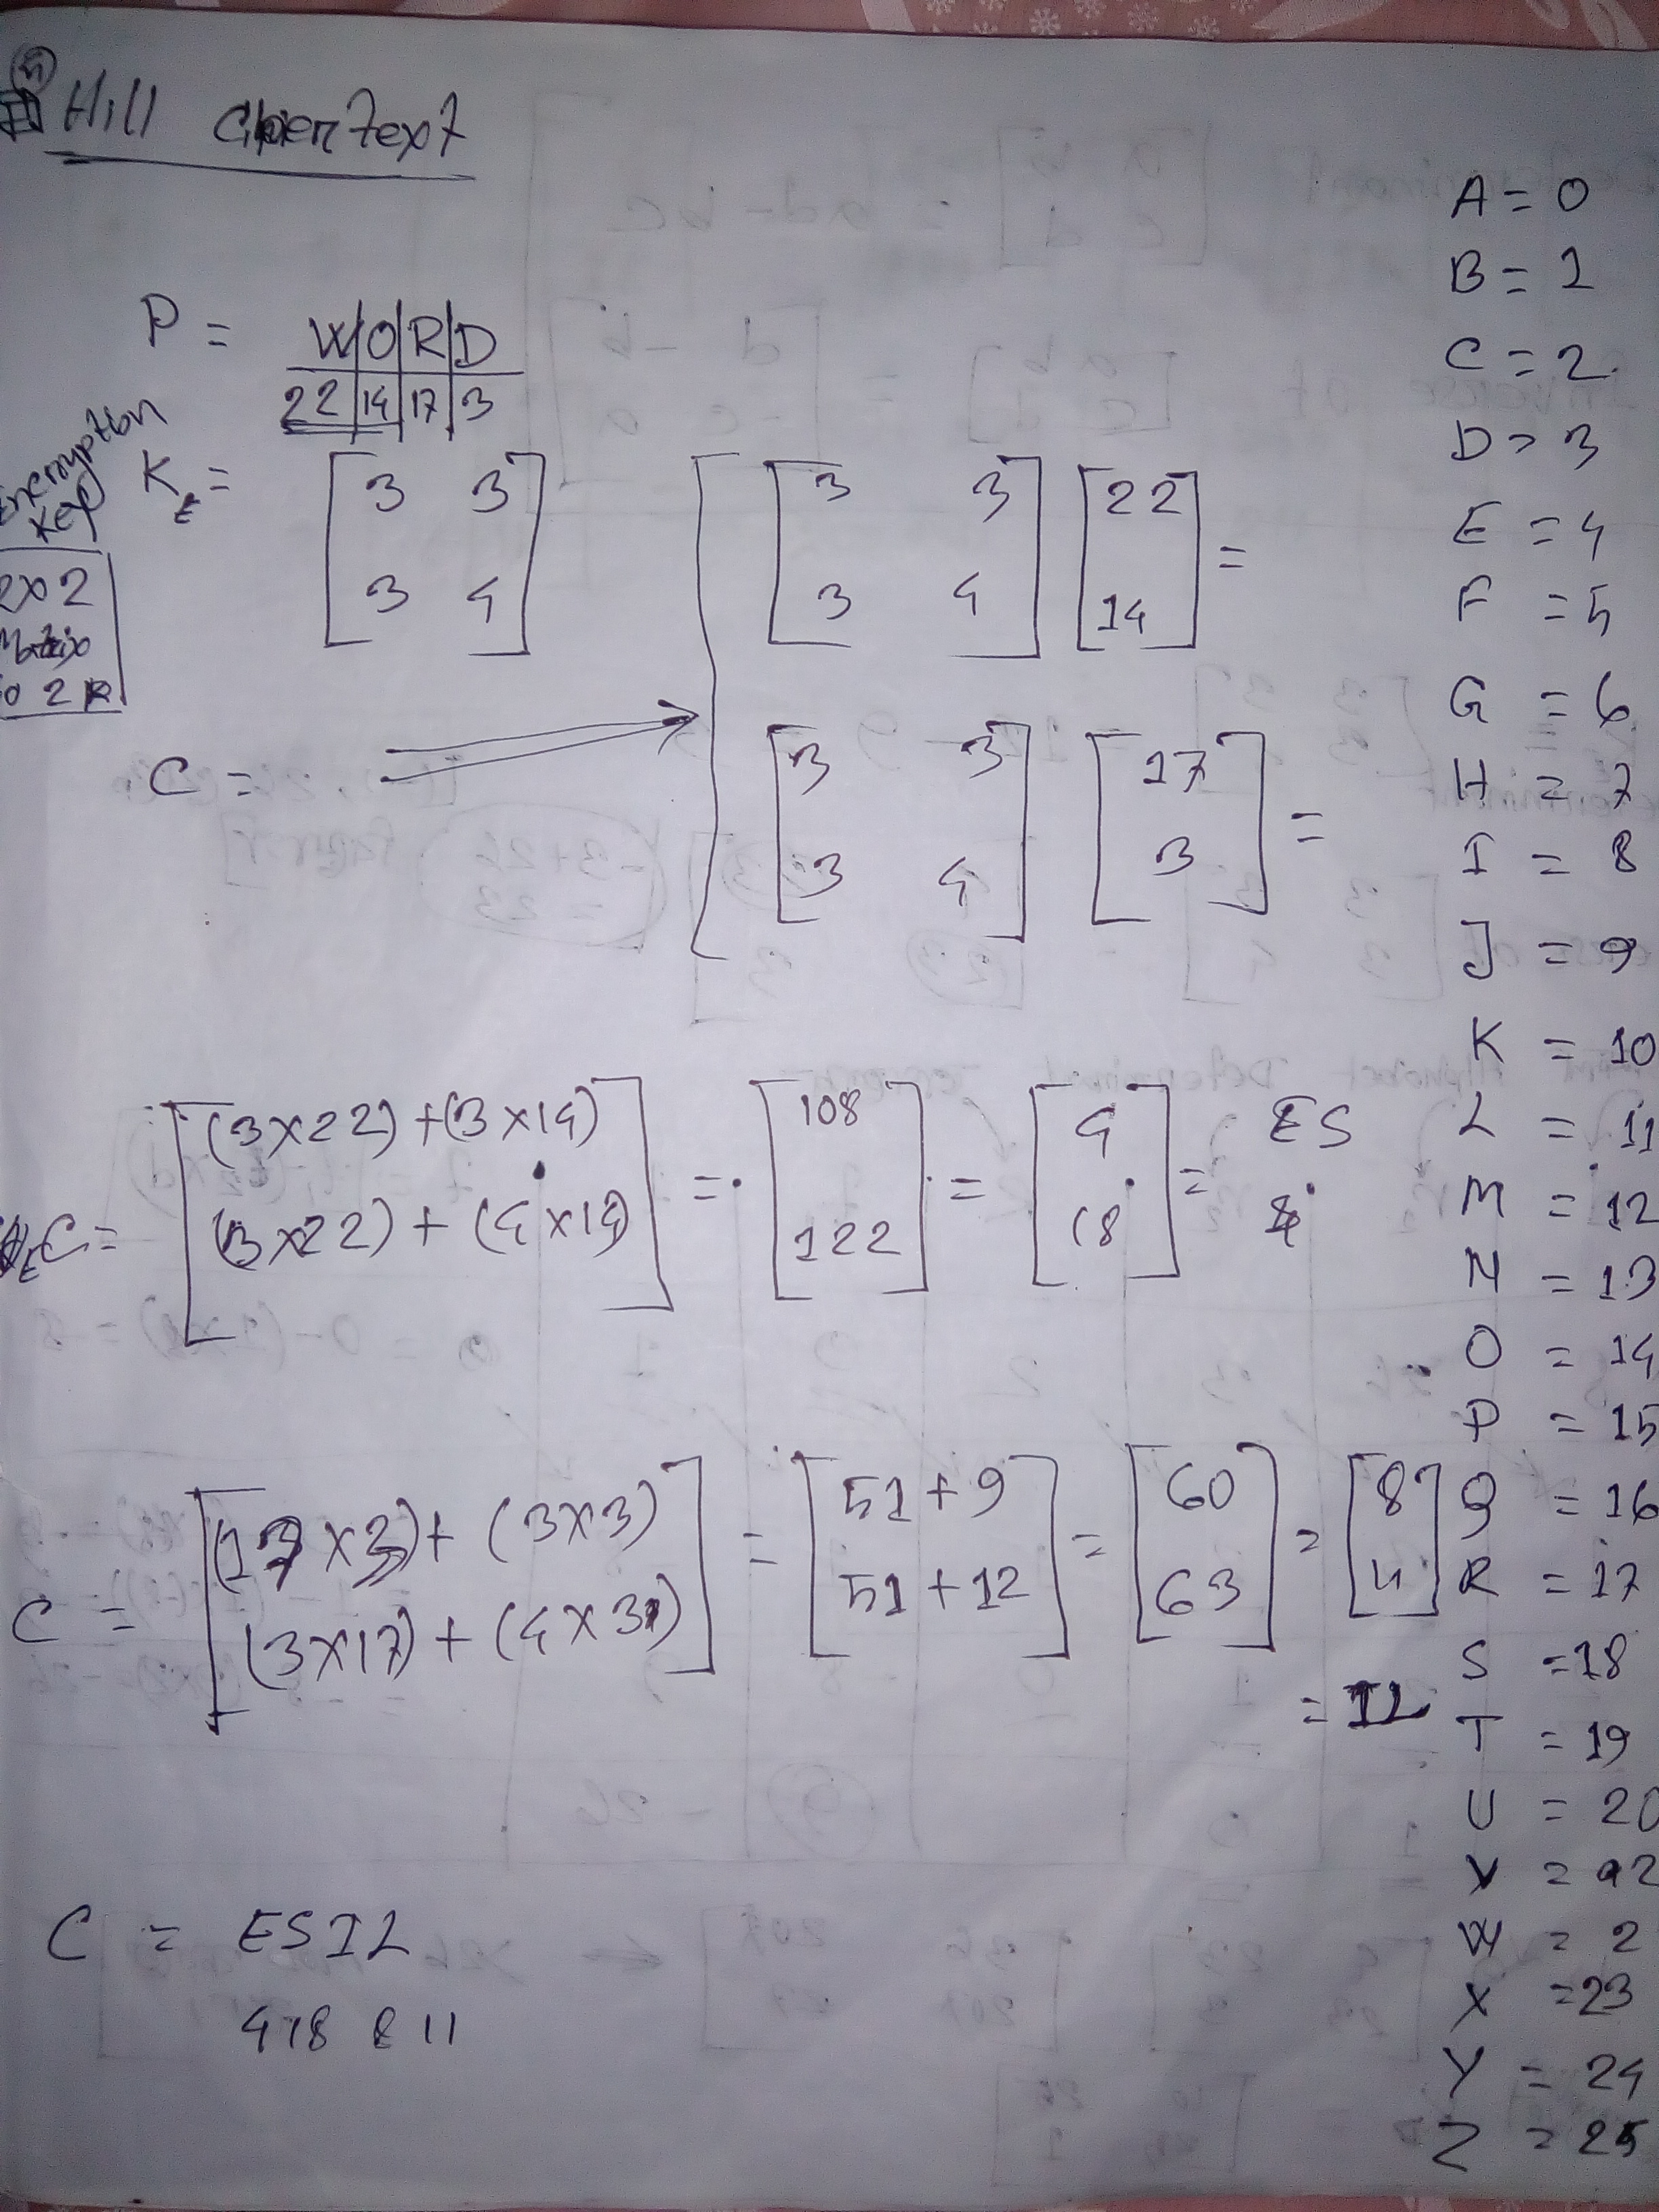 Hill CiperText
P = W|O|R|D
22|14|17|3
Encryption Key
K_E = [3 3
3 4]
2x2
Matrix
[3 3
3 4] [22
14] =
C = ⟹
[3 3
3 4] [17
3] =
C = [(3x22)+(3x14)
(3x22)+(4x14)] = [108
122] = [4
18] = ES
C = [(17x3)+(3x3)
(3x17)+(4x3)] = [51+9
51+12] = [60
63] = [8
11]
= IL
C = ESIL
4 18 8 11
A = 0
B = 1
C = 2
D = 3
E = 4
F = 5
G = 6
H = 7
I = 8
J = 9
K = 10
L = 11
M = 12
N = 13
O = 14
P = 15
Q = 16
R = 17
S = 18
T = 19
U = 20
V =
W = 2
X = 23
Y = 24
Z = 25